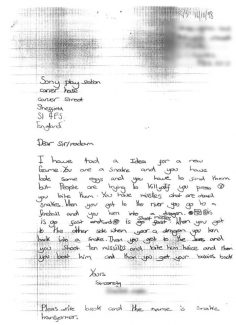 Sony play station
carver house
carver street
Sheffield
S1 4PS
England
Dear Sir/madam
I have had a Idea for a new
Game You are a Snake and you have
lots some eggs and you have to find them
but People are trying to kill you press
you bite them You have missiles that are
Snakes. When you get to the river you go to a
and you turn into a dragon.
is go fast and is go When you get
to the other side when your a dragon you turn
back into a Snake. Than you get to the and
you shoot ten missiles and bite him twice and then
you beat him and than you get your back
Yours
Sincerely
Please write back and the name is Snake
transformer.